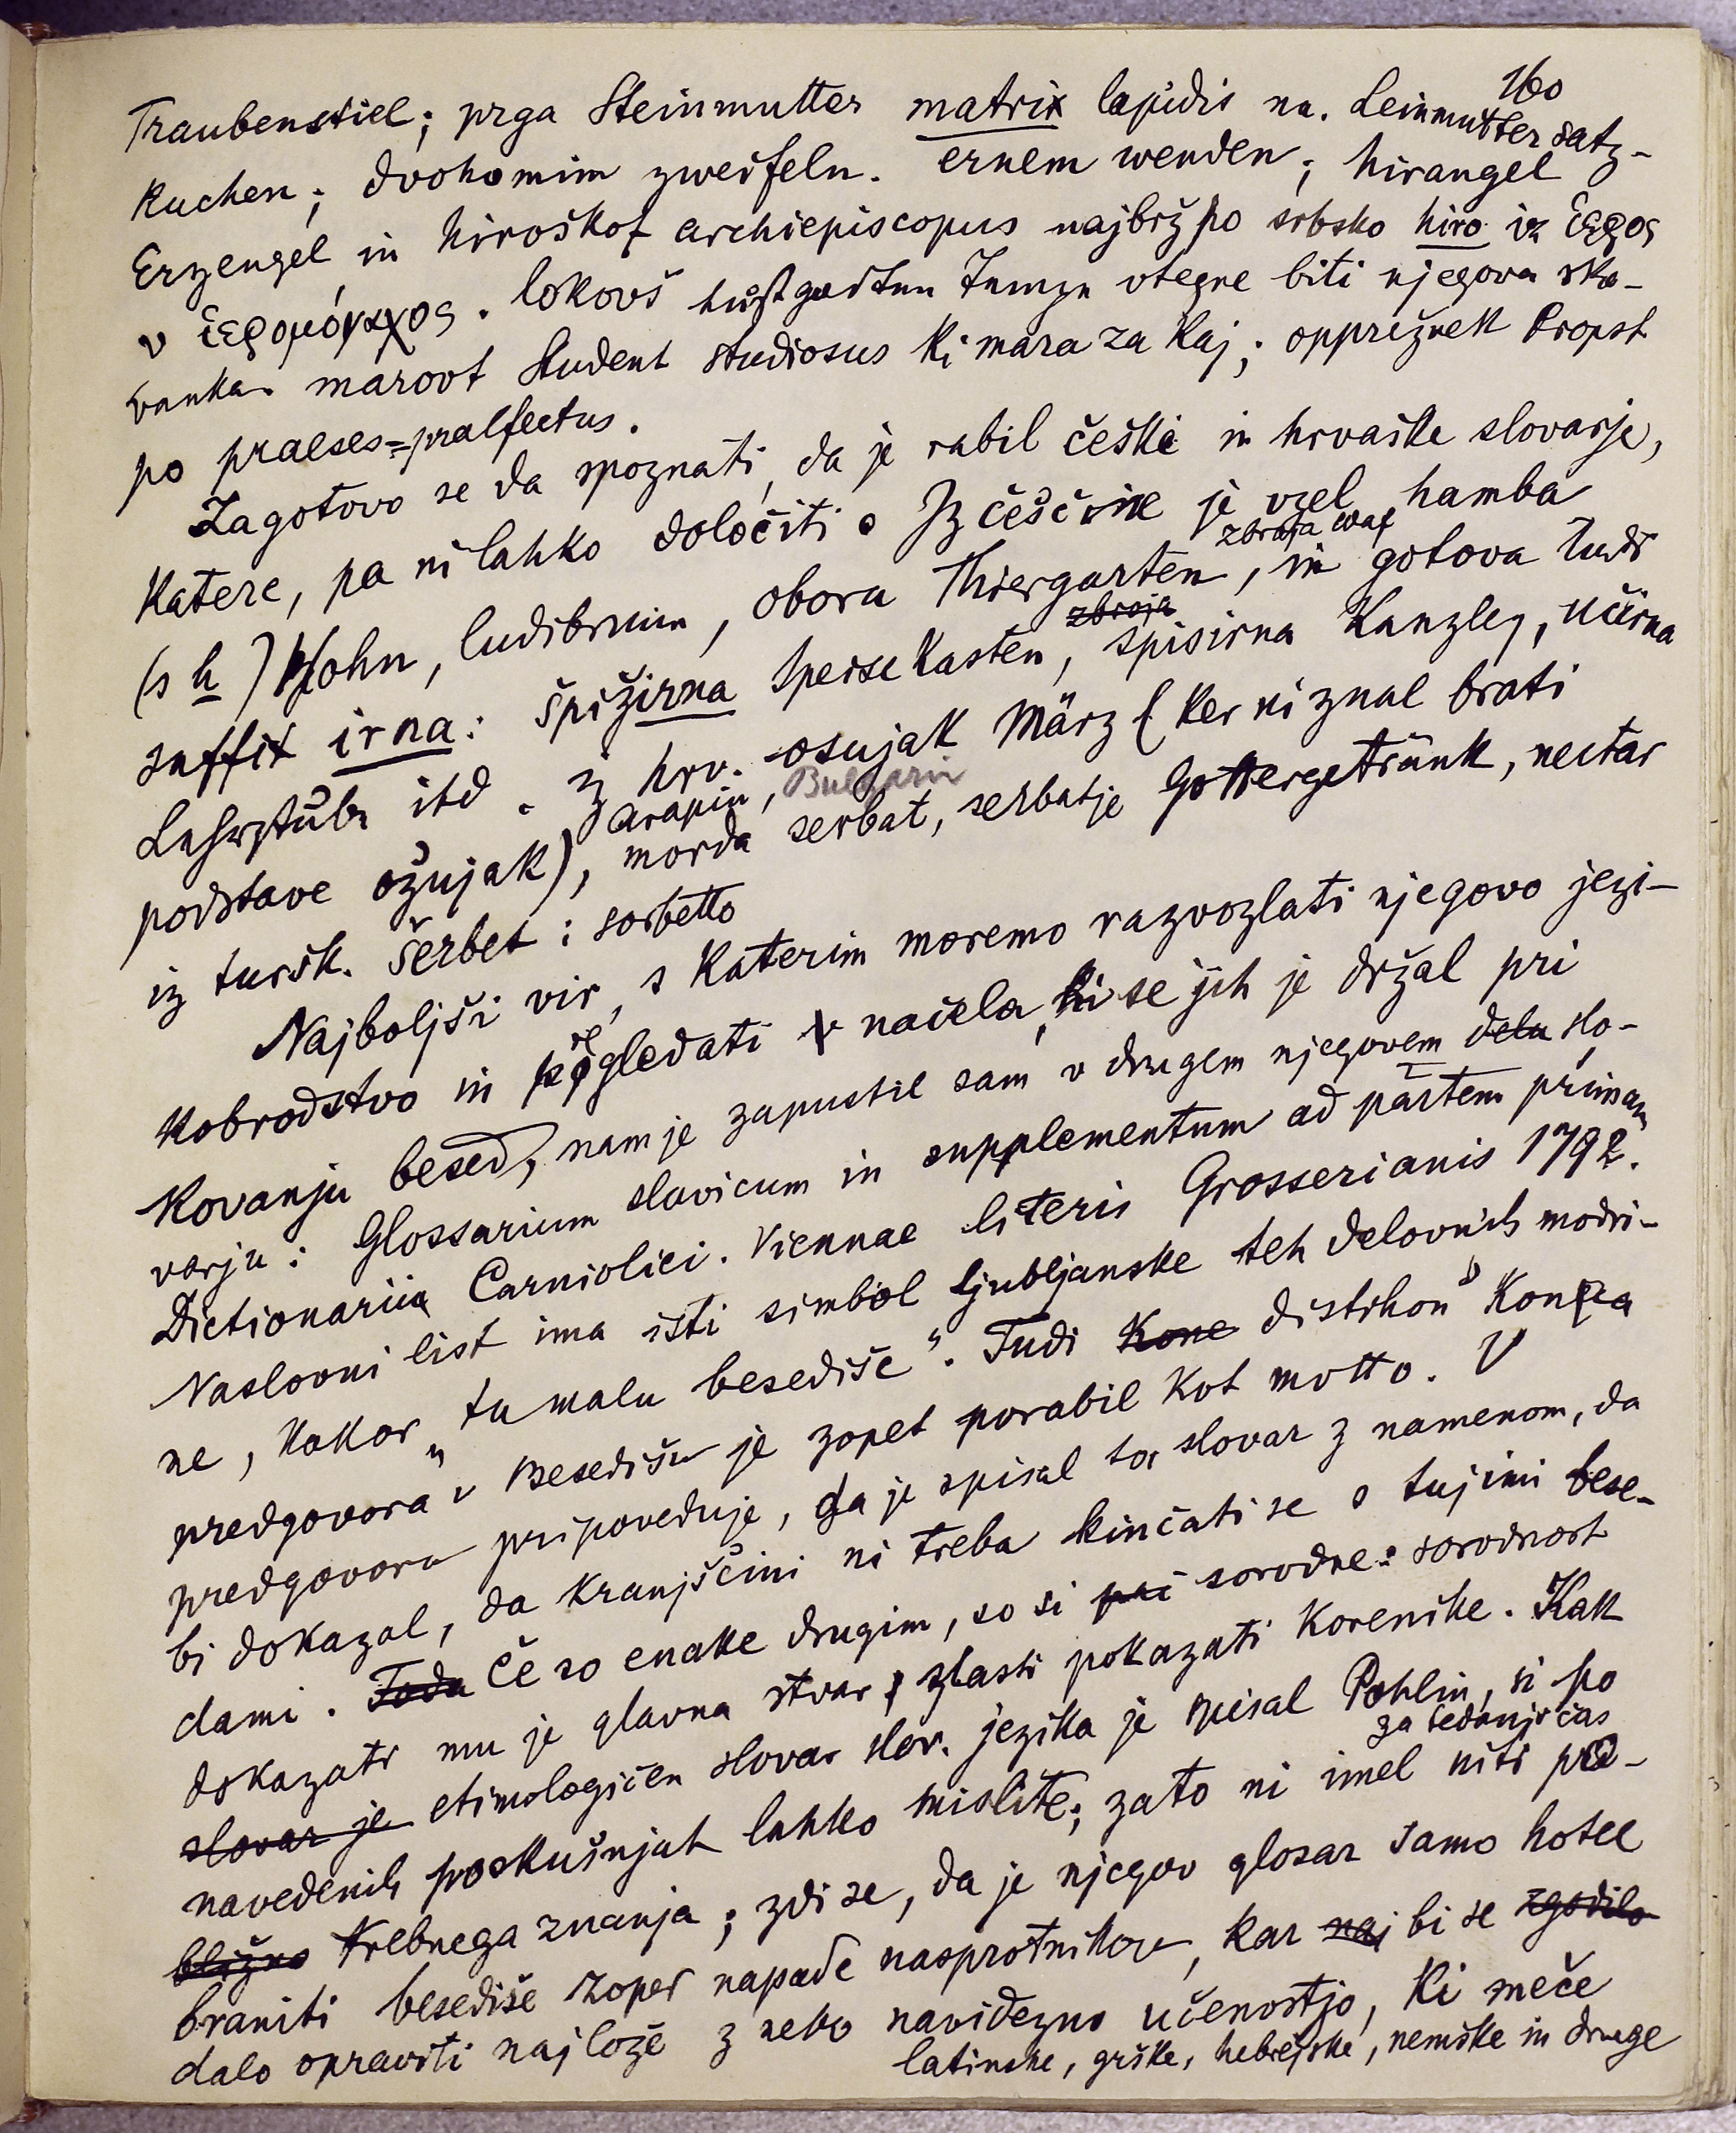 160
Traubenstiel; prga Steinmutter matrix lapidis na. Leinmutter satz-
kuchen; dvohomim zweifeln. ernem wenden; hirangel
Erzengel in hiroškof archiepiscopus najbrž po srbsko hiro iz ἱερος
v ἱερομόναχος. lokovš utegne biti njegova ska-
vanka. marovt student studiosus ki mara za kaj; opprižnek Propst
po praeses = praefectus.
Zagotovo se da spoznati, da je rabil češke in hrvaške slovarje,
katere, pa ni lahko določiti. Iz češčine je vzel hamba
zbroja waf
(s h) Hohn, ludibrium, obora Thiergarten, in gotova tudi
zbroja
suffix irna: špižirna Speisekasten, spisirna Kanzley, učirna
Lehrstube itd. iz hrv. osujak März (ker ni znal brati
arapin, Bulgarin
podstave ožujak), morda serbat, serbatje Gottergetränk, nectar
iz tursk. šerbet: sorbetto
Najboljši vir, s katerim moremo razvozlati njegovo jezi-
kobrodstvo in pregledati načela, ki se jih je držal pri
kovanju besed, nam je zapustil sam v drugem njegovem delu slo-
varju: Glossarium slavicum in supplementum ad partem primam
Dictionarii Carniolici. Viennae literis Grosserianis 1792.
Naslovni list ima isti simbol ljubljanske teh delovnih modri-
ne, kakor „tu malu besediše“. Tudi Kone distihon „Konca
predgovora“ v Besedišu je zopet porabil kot motto. V
predgovoru pripoveduje, da je spisal ta slovar z namenom, da
bi dokazal, da kranjščini ni treba kinčati se s tujimi bese-
dami. Toda Če so enake drugim, so si pri sorodne: sorodnost
dokazati mu je glavna stvar, zlasti pokazati korenike. Kak
slovar je etimologičen slovar slov. jezika je spisal Pohlin, si po
za tedanji čas
navedenih poskušnjah lahko mislite; zato ni imel niti pri-
bližno trebnega znanja; zdi se, da je njegov glosar samo hotel
braniti besediše zoper napade nasprotnikov, kar naj bi se zgodilo
dalo opraviti najlože z neko navidezno učenostjo, ki meče
latinske, grške, hebrejske, nemške in druge